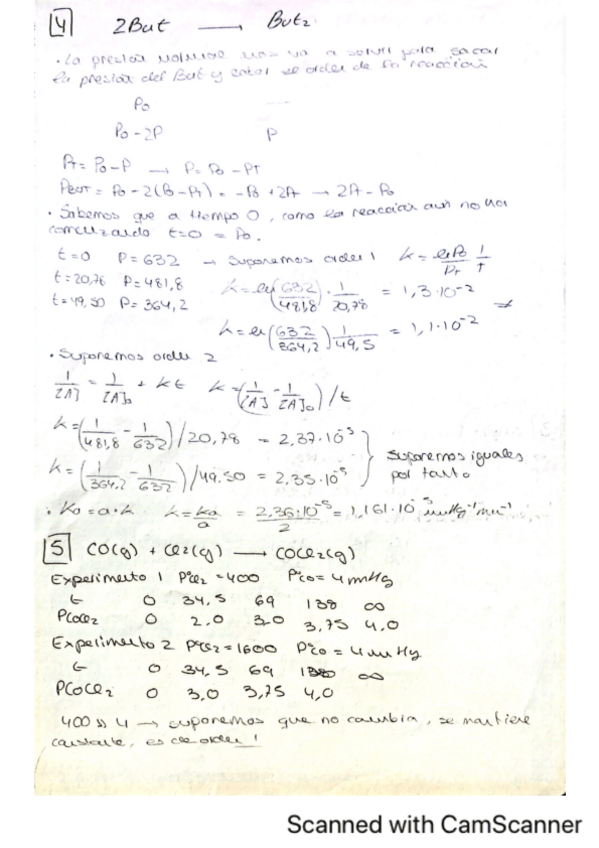 4 2But → But₂
· La presión nos va a servir para sacar
la presión del But y saber el orden de la reacción
P₀
P₀ - 2P P
Pт = P₀ - P → P = P₀ - Pт
Pвυт = P₀ - 2(P₀ - Pт) = -P₀ + 2Pт → 2Pт - P₀
· Sabemos que a tiempo 0, como la reacción aun no ha
comenzado t=0 = P₀.
t=0 P=632 → Suponemos orden 1 k = ln P₀/Pт 1/t
t=20,78 P=481,8 k = ln(632/481,8) · 1/20,78 = 1,3·10⁻²
t=49,50 P=364,2 k = ln(632/364,2) 1/49,5 = 1,1·10⁻² ≠
· Suponemos orden 2
1/[A] = 1/[A]₀ + kt k = (1/[A] - 1/[A]₀)/t
k = (1/481,8 - 1/632)/20,78 = 2,37·10⁻⁵
k = (1/364,2 - 1/632)/49,50 = 2,35·10⁻⁵ } Suponemos iguales por tanto
· Ka = a·k k = ka/a = 2,36·10⁻⁵/2 = 1,161·10⁻⁵ mmHg⁻¹min⁻¹
5 CO(g) + Cl₂(g) → COCl₂(g)
Experimento 1 P°cl₂ = 400 P°co = 4mmHg
t 0 34,5 69 138 ∞
Pcocl₂ 0 2,0 3,0 3,75 4,0
Experimento 2 P°cl₂ = 1600 P°co = 4mmHg
t 0 34,5 69 138 ∞
Pcocl₂ 0 3,0 3,75 4,0
400 >> 4 → suponemos que no cambia, se mantiene
constante, es de orden 1
Scanned with CamScanner